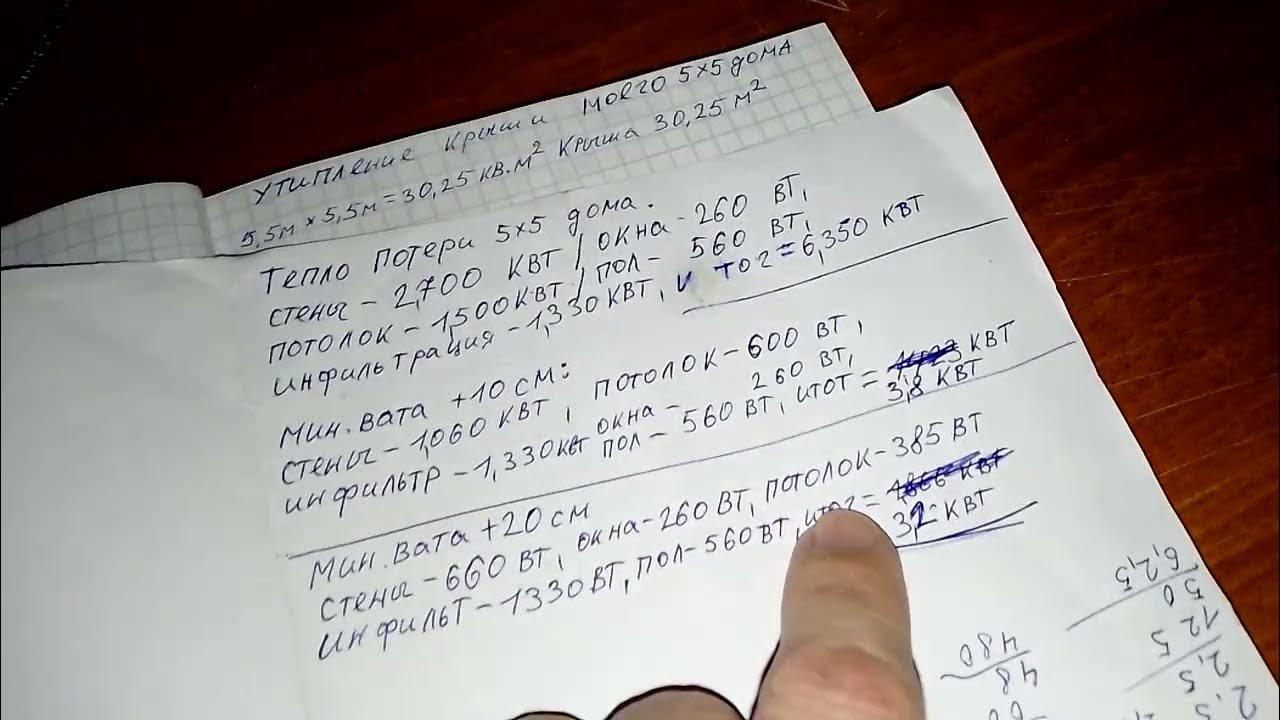 УТИПЛЕНИЕ КРЫШИ МОЕГО 5×5 ДОМА
5,5М × 5,5М = 30,25 КВ.М² КРЫША 30,25 М²
ТЕПЛО ПОТЕРИ 5×5 ДОМА.
СТЕНЫ - 2,700 КВТ / ОКНА - 260 ВТ,
ПОТОЛОК - 1,500 КВТ / ПОЛ - 560 ВТ,
ИНФИЛЬТРАЦИЯ - 1,330 КВТ, ИТОГ = 6,350 КВТ
МИН. ВАТА +10 СМ:
СТЕНЫ - 1,060 КВТ, ПОТОЛОК - 600 ВТ,
ИНФИЛЬТР - 1,330 КВТ ОКНА - 260 ВТ,
ПОЛ - 560 ВТ, ИТОТ = КВТ
3,8 КВТ
МИН. ВАТА +20 СМ
СТЕНЫ - 660 ВТ, ОКНА - 260 ВТ, ПОТОЛОК - 385 ВТ
ИНФИЛЬТ - 1330 ВТ, ПОЛ - 560 ВТ, ИТОГ =
3,2 КВТ
2,5
2,5
12 5
50
6,2,5
48
480